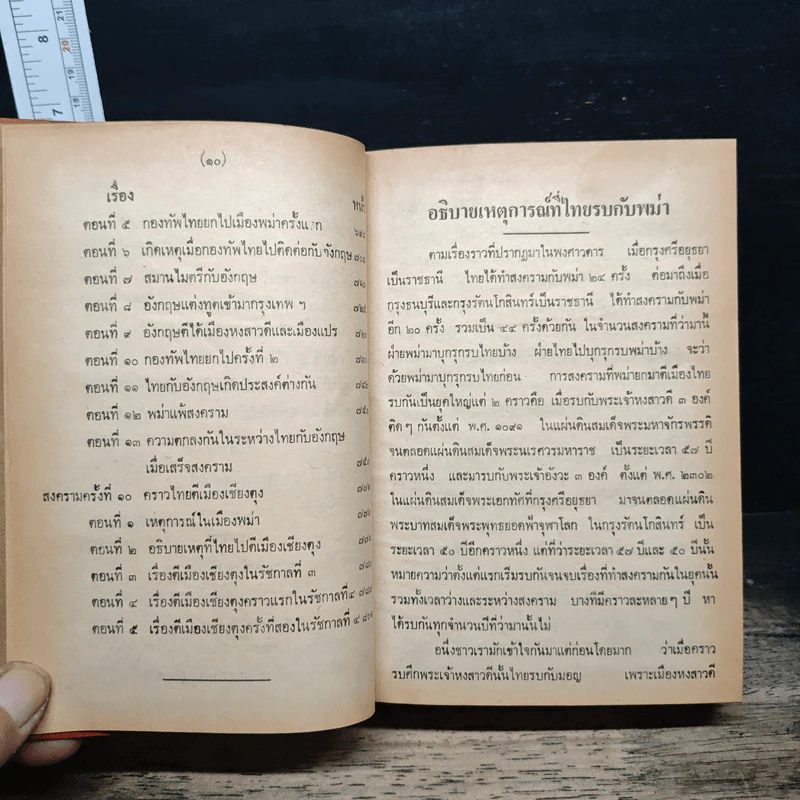 (๑๐)
เรื่อง
หน้า
ตอนที่ ๕ กองทัพไทยยกไปเมืองพม่าครั้งแรก
ตอนที่ ๖ เกิดเหตุเมื่อกองทัพไทยไปติดต่อกับอังกฤษ ๗๐๔
ตอนที่ ๗ สมานไมตรีกับอังกฤษ
ตอนที่ ๘ อังกฤษแต่งทูตเข้ามากรุงเทพ ฯ
ตอนที่ ๙ อังกฤษตีได้เมืองหงสาวดีและเมืองแปร
ตอนที่ ๑๐ กองทัพไทยยกไปครั้งที่ ๒
ตอนที่ ๑๑ ไทยกับอังกฤษเกิดประสงค์ต่างกัน
ตอนที่ ๑๒ พม่าแพ้สงคราม
ตอนที่ ๑๓ ความตกลงกันในระหว่างไทยกับอังกฤษ
เมื่อเสร็จสงคราม
สงครามครั้งที่ ๑๐ คราวไทยตีเมืองเชียงตุง
ตอนที่ ๑ เหตุการณ์ในเมืองพม่า
ตอนที่ ๒ อธิบายเหตุที่ไทยไปตีเมืองเชียงตุง
ตอนที่ ๓ เรื่องตีเมืองเชียงตุงในรัชกาลที่ ๓
ตอนที่ ๔ เรื่องตีเมืองเชียงตุงคราวแรกในรัชกาลที่๔
ตอนที่ ๕ เรื่องตีเมืองเชียงตุงครั้งที่สองในรัชกาลที่ ๔
อธิบายเหตุการณ์ที่ไทยรบกับพม่า
ตามเรื่องราวที่ปรากฏมาในพงศาวดาร เมื่อกรุงศรีอยุธยา
เป็นราชธานี ไทยได้ทำสงครามกับพม่า ๒๔ ครั้ง ต่อมาถึงเมื่อ
กรุงธนบุรีและกรุงรัตนโกสินทร์เป็นราชธานี ได้ทำสงครามกับพม่า
อีก ๒๐ ครั้ง รวมเป็น ๔๔ ครั้งด้วยกัน ในจำนวนสงครามที่ว่ามานี้
ฝ่ายพม่ามาบุกรุกรบไทยบ้าง ฝ่ายไทยไปบุกรุกรบพม่าบ้าง จะว่า
ด้วยพม่ามาบุกรุกรบไทยก่อน การสงครามที่พม่ายกมาตีเมืองไทย
รบกันเป็นยุคใหญ่แต่ ๒ คราวคือ เมื่อรบกับพระเจ้าหงสาวดี ๓ องค์
ติดๆ กันตั้งแต่ พ.ศ. ๒๐๙๑ ในแผ่นดินสมเด็จพระมหาจักรพรรดิ
จนตลอดแผ่นดินสมเด็จพระนเรศวรมหาราช เป็นระยะเวลา ๕๗ ปี
คราวหนึ่ง และมารบกับพระเจ้าอังวะ ๓ องค์ ตั้งแต่ พ.ศ. ๒๓๐๒
ในแผ่นดินสมเด็จพระเอกทัศที่กรุงศรีอยุธยา มาจนตลอดแผ่นดิน
พระบาทสมเด็จพระพุทธยอดฟ้าจุฬาโลก ในกรุงรัตนโกสินทร์ เป็น
ระยะเวลา ๕๐ ปีอีกคราวหนึ่ง แต่ที่ว่าระยะเวลา ๕๗ ปีและ ๕๐ ปีนั้น
หมายความว่าตั้งแต่แรกเริ่มรบกันจนจบเรื่องที่ทำสงครามกันในยุคนั้น
รวมทั้งเวลาว่างและระหว่างสงคราม บางทีมีคราวละหลายๆ ปี หา
ได้รบกันทุกจำนวนปีที่ว่ามานั้นไม่
อนึ่งชาวเรามักเข้าใจกันมาแต่ก่อนโดยมาก ว่าเมื่อคราว
รบศึกพระเจ้าหงสาวดีนั้นไทยรบกับมอญ เพราะเมืองหงสาวดี